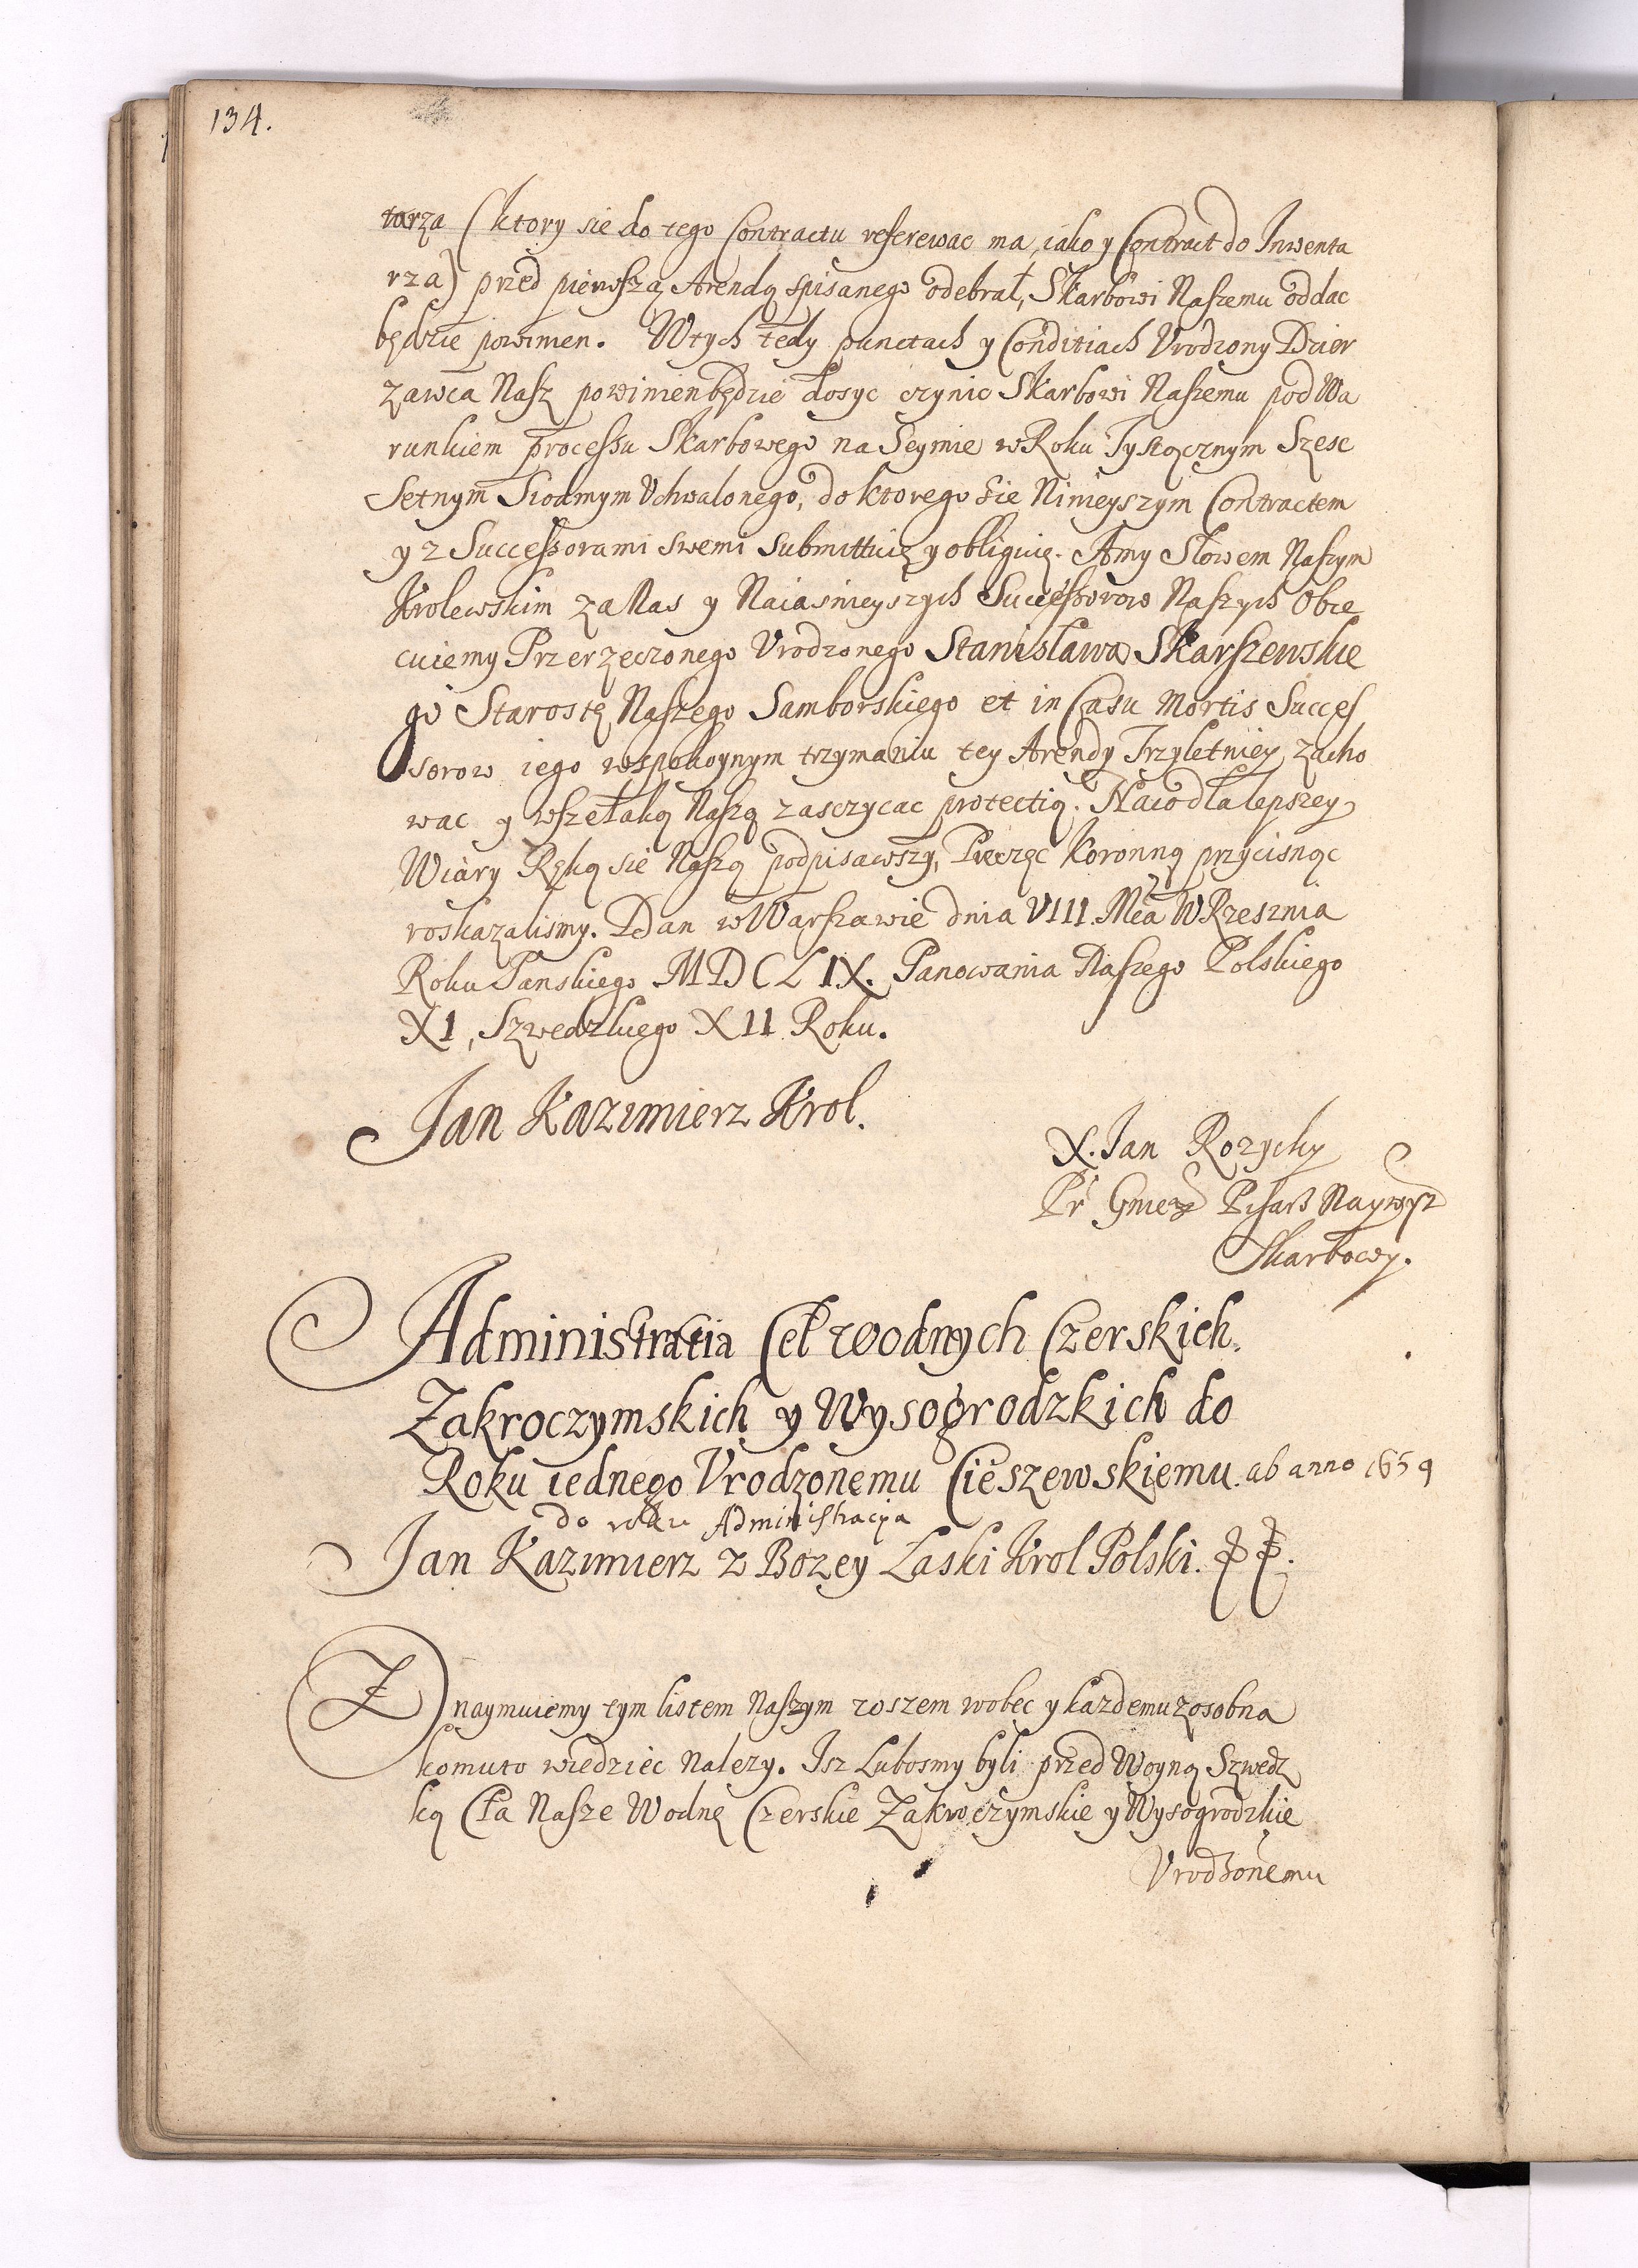 134.
tarza (ktory sie do tego Contractu referewac ma, iako y Contract do Inwenta
rza) przed pierwszą Arendą spisanego odebrał, Skarbowi Naszemu oddac
będzie powinien. Wtych tedy punctach y Conditiach Vrodzony Dzier
zawca Nasz powinien będzie dosyc czynic Skarbowi Naszemu pod Wa
runkiem processu Skarbowego na Seymie w Roku Tysiącznym Szesc
Setnym Siodmym Vchwalonego, do ktorego sie Ninieyszym Contractem
y z Successorami swemi submittuię y obliguię. Amy Słowem Naszym
Krolewskim za Nas y Naiasnieyszych Successorow Naszych Obie
cuiemy Przerzeczonego Vrodzonego Stanisława Skarszewskie
go Starostę Naszego Samborskiego et in Casu Mortis Succes
sorow iego wspokoynym trzymaniu tey Arendy Trzyletniey zacho
wac y wszelaką Naszą zasczycac protectią. Naco dla lepszey
Wiary Ręką sie Naszą podpisawszy, Pieczęc Koronną przycisnąc
roskazalismy. Dan w Warszawie dnia VIII. Mca WRzesznia
Roku Panskiego MDCLIX. Panowania Naszego Polskiego
XI, Szwedzkiego XII Roku.
Jan Kazimierz Krol.
X. Jan Rozycky
Pr Gniez Pisarz Naywysz
Skarbowy.
Administratia Ceł wodnych Czerskich.
Zakroczymskich y Wysogrodzkich do
Roku iednego Vrodzonemu Cieszewskiemu. ab anno 1659
do roku Administracya
Jan Kazimierz z Bozey Łaski Krol Polski. PP.
Znaymuiemy tym listem Naszym wszem wobec y kazdemu zosobna
komuto wiedziec Nalezy. Isz Lubosmy byli przed Woyną Szwedz
ką Cła Nasze Wodnę Czerskie Zakroczymskie y Wysogrodzkie
Vrodzonemu